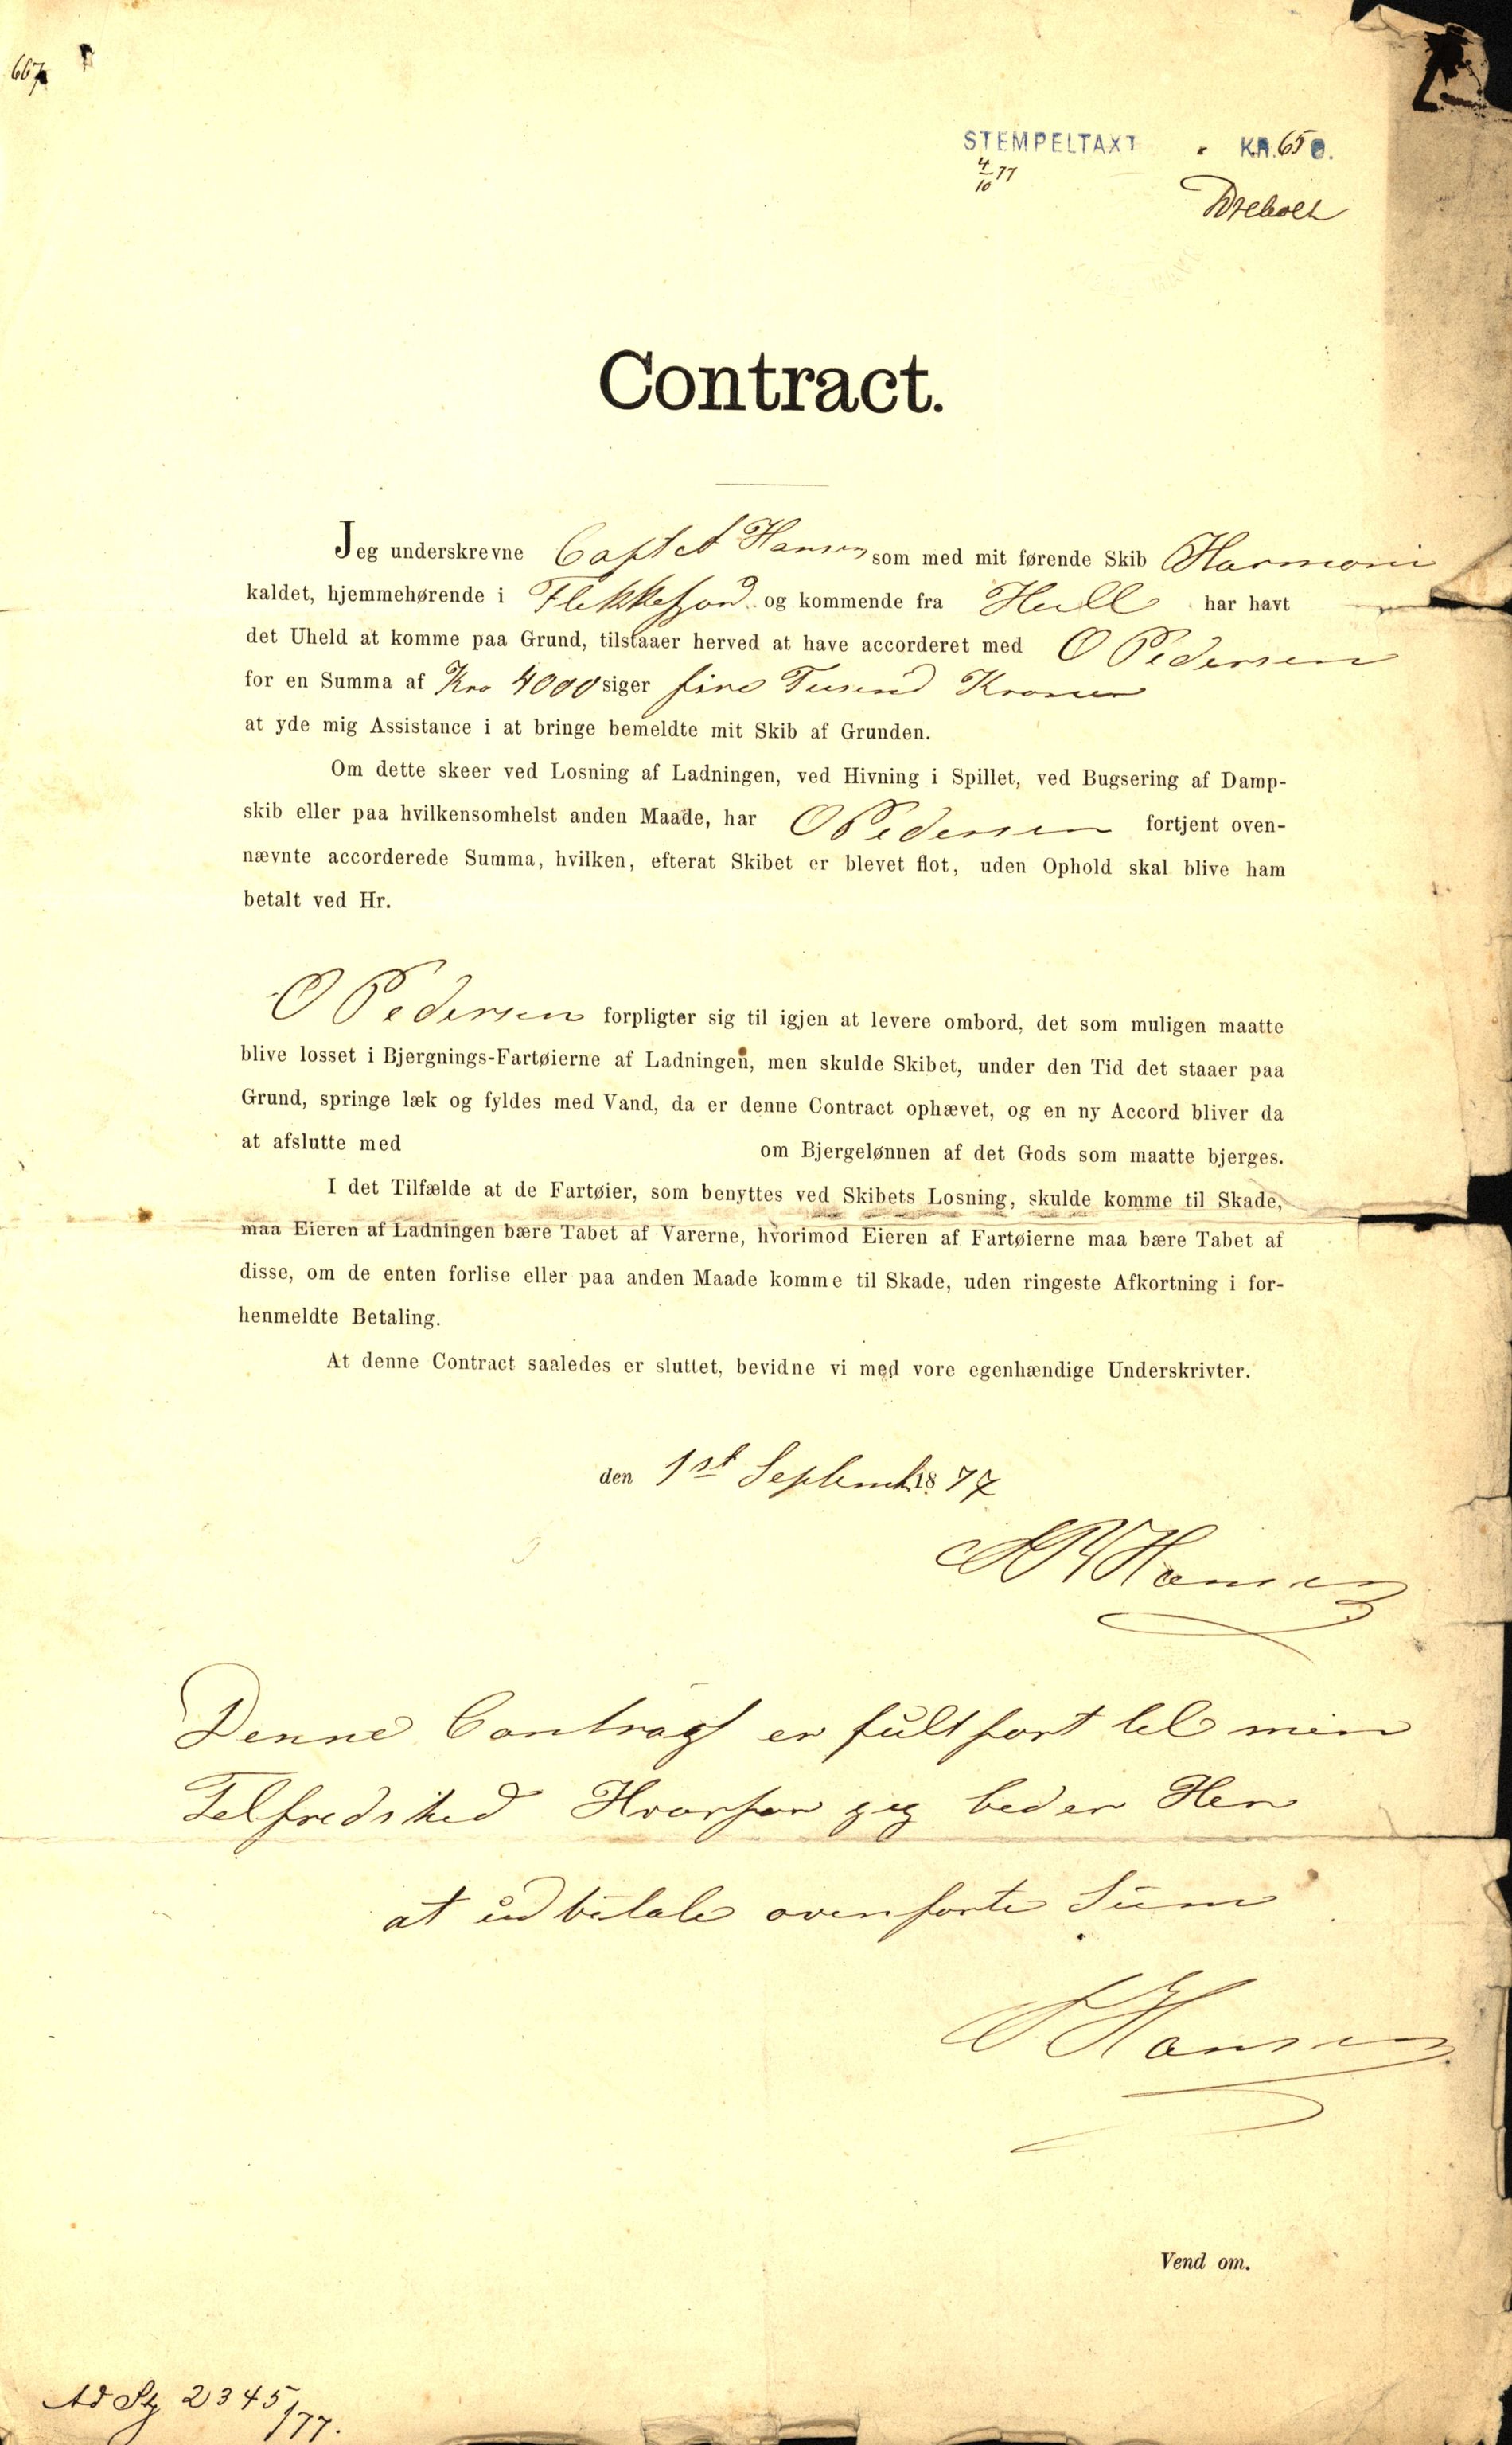 667
STEMPELTAXT KR. 65 Ø.
4/10 77
Contract.
Jeg underskrevne Capt Hansen som med mit førende Skib Harmoni
kaldet, hjemmehørende i Flekkefjord og kommende fra Hull har havt
det Uheld at komme paa Grund, tilstaaer herved at have accorderet med O Pedersen
for en Summa af Kro 4000 siger fire Tusend Kroner
at yde mig Assistance i at bringe bemeldte mit Skib af Grunden.
Om dette skeer ved Losning af Ladningen, ved Hivning i Spillet, ved Bugsering af Damp-
skib eller paa hvilkensomhelst anden Maade, har O Pedersen fortjent oven-
nævnte accorderede Summa, hvilken, efterat Skibet er blevet flot, uden Ophold skal blive ham
betalt ved Hr.
O Pedersen forpligter sig til igjen at levere ombord, det som muligen maatte
blive losset i Bjergnings-Fartøierne af Ladningen, men skulde Skibet, under den Tid det staaer paa
Grund, springe læk og fyldes med Vand, da er denne Contract ophævet, og en ny Accord bliver da
at afslutte med om Bjergelønnen af det Gods som maatte bjerges.
I det Tilfælde at de Fartøier, som benyttes ved Skibets Losning, skulde komme til Skade,
maa Eieren af Ladningen bære Tabet af Varerne, hvorimod Eieren af Fartøierne maa bære Tabet af
disse, om de enten forlise eller paa anden Maade komme til Skade, uden ringeste Afkortning i for-
henmeldte Betaling.
At denne Contract saaledes er sluttet, bevidne vi med vore egenhændige Underskrivter.
den 1st Septemb. 1877
Hansen
Denne Contragt er fultført til min
Telfredshed Hvorfor jeg beder Her
at udbetale ovenførte Sum
Hansen
Vend om.
Ad 2345/77.